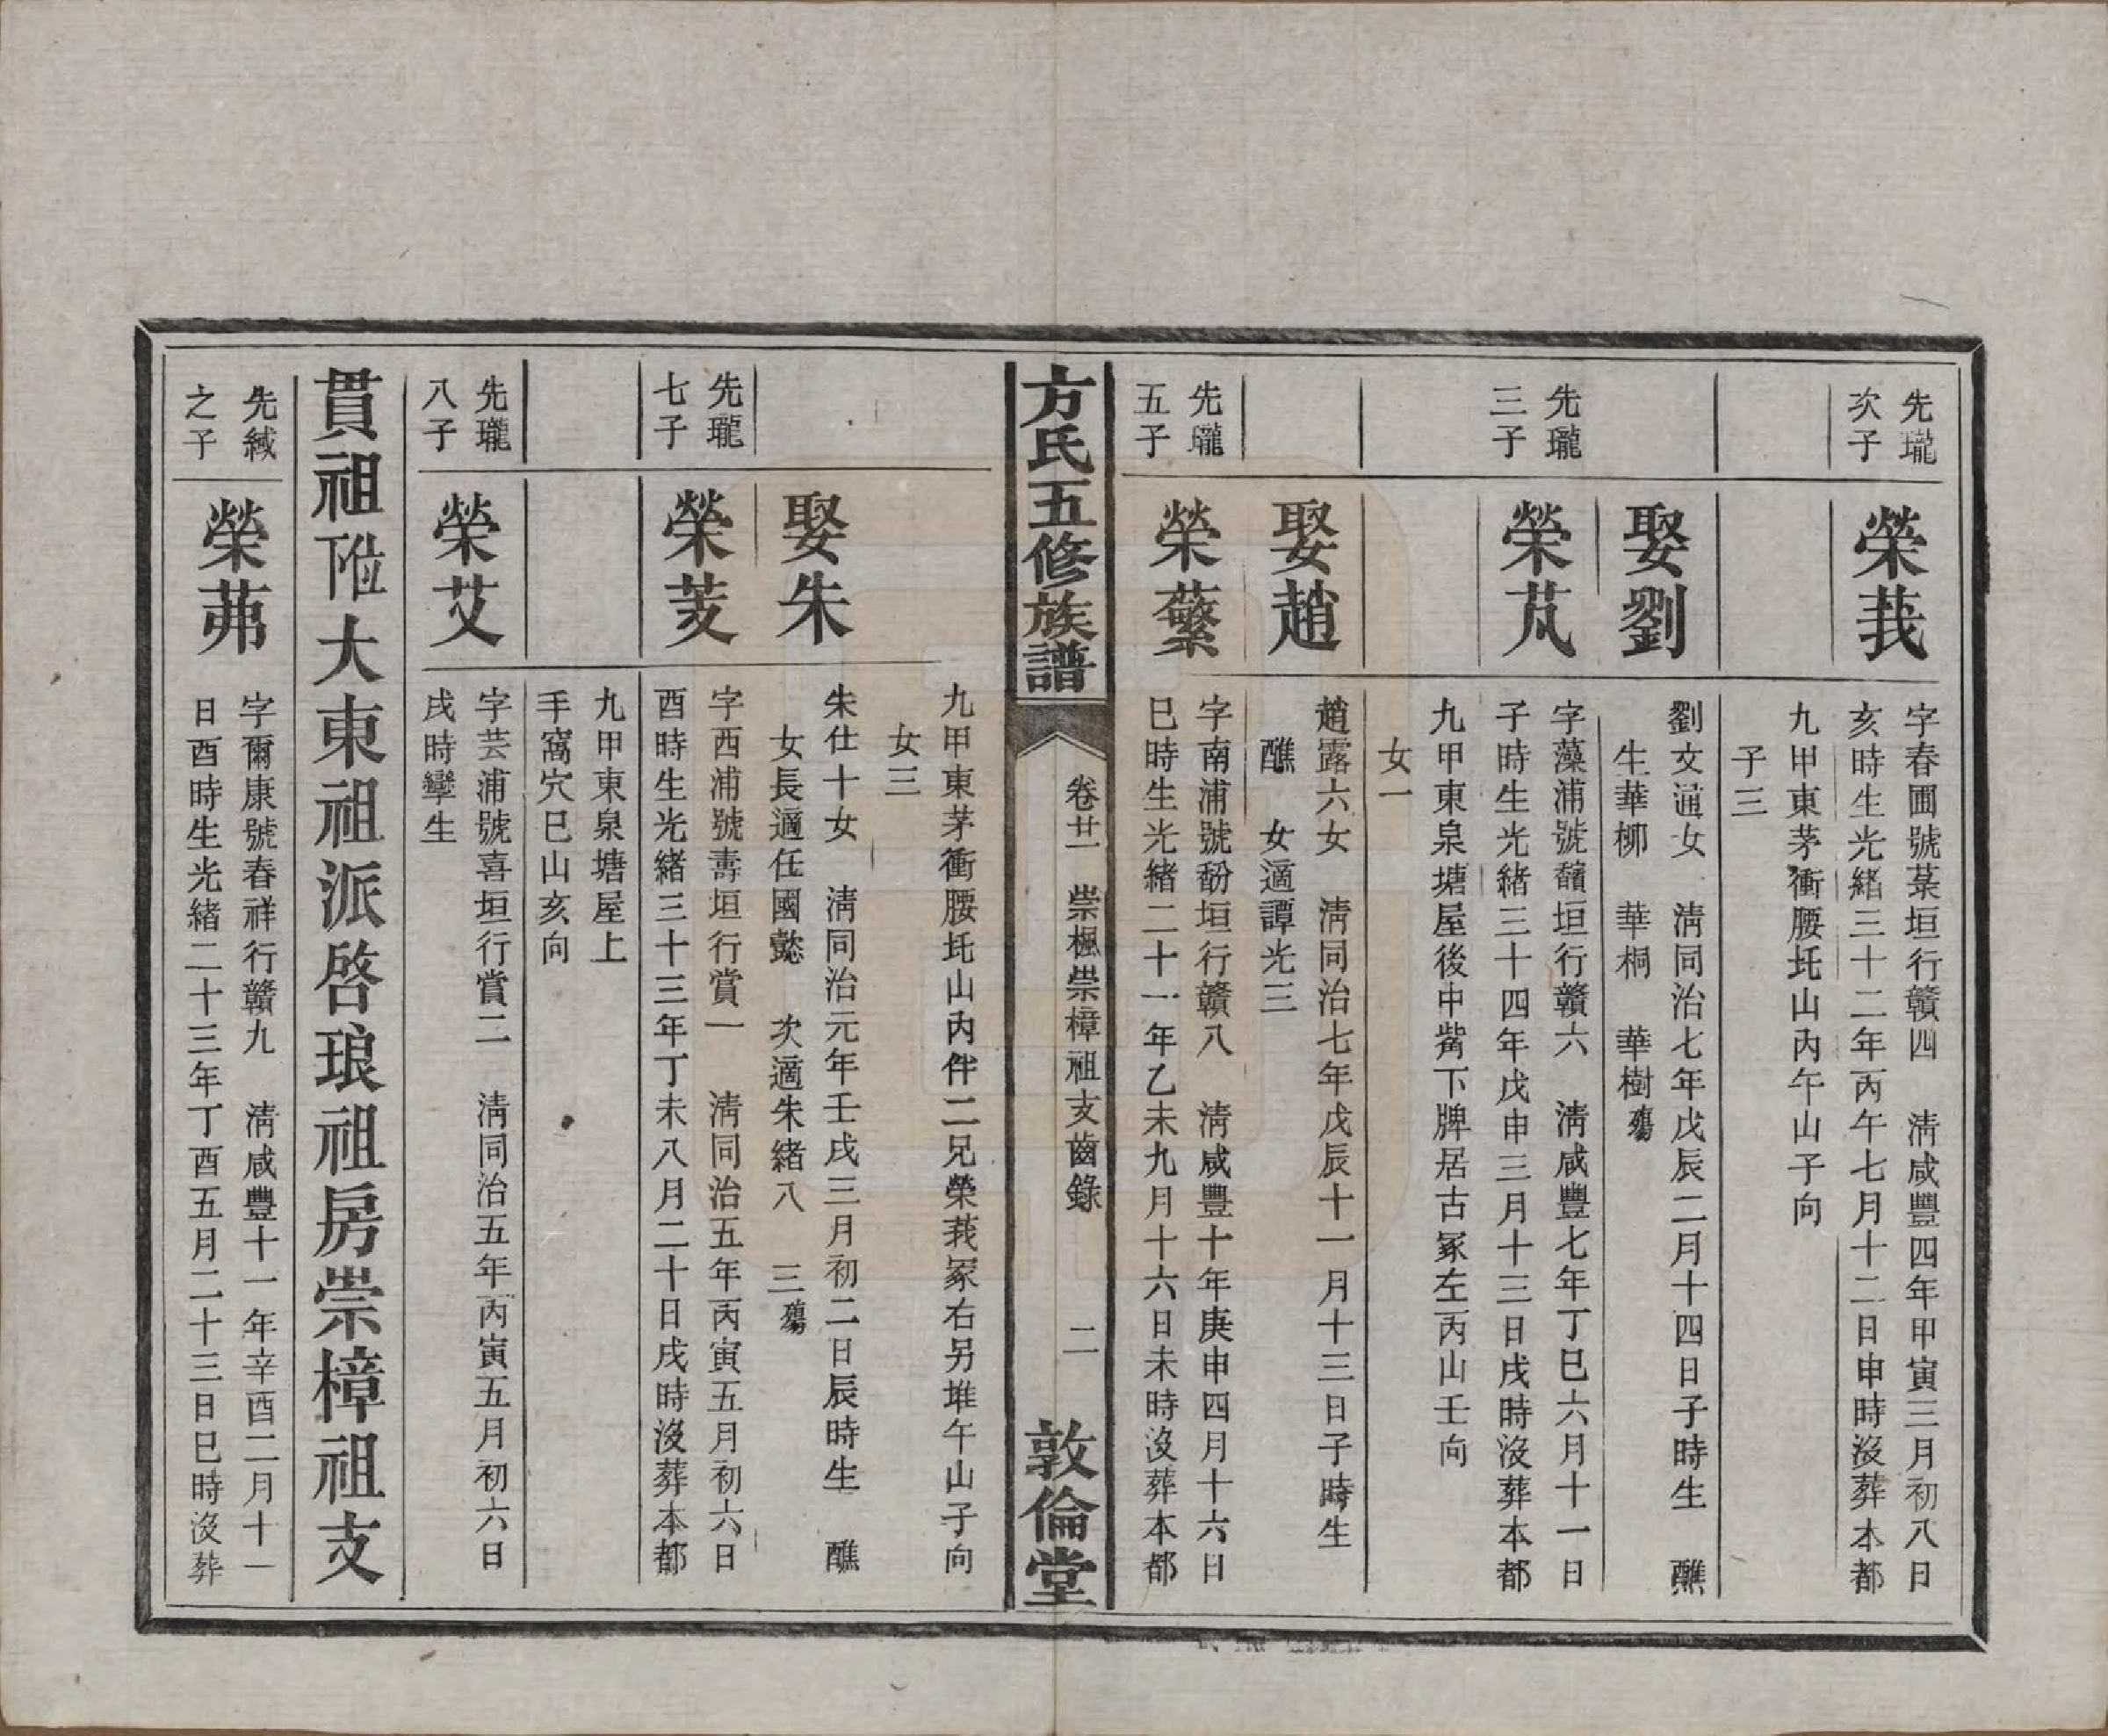 先瓏
次子
榮莪
字春圃號菜垣行贛四　清咸豐四年甲寅三月初八日
亥時生光緒三十二年丙午七月十二日申時沒葬本都
九甲東茅衝腰坉山內午山子向
子三
娶劉
劉文通女　清同治七年戊辰二月十四日子時生　醮
生華柳　華桐　華樹殤
先瓏
三子
榮芃
字藻浦號馩垣行贛六　清咸豐七年丁巳六月十一日
子時生光緒三十四年戊申三月十三日戌時沒葬本都
九甲東泉塘屋後中嘴下牌居古冢左丙山壬向
女一
娶趙
趙露六女　清同治七年戊辰十一月十三日子時生
醮　女適譚光三
先瓏
五子
榮蘩
字南浦號馚垣行贛八　清咸豐十年庚申四月十六日
巳時生光緒二十一年乙未九月十六日未時沒葬本都
方氏五修族譜
卷廿一　崇楓崇樟祖支齒錄
二
敦倫堂
九甲東茅衝腰坉山內伴二兄榮莪冢右另堆午山子向
女三
娶朱
朱仕十女　清同治元年壬戌三月初二日辰時生　醮
女長適任國懿　次適朱緒八　三殤
先瓏
七子
榮芰
字西浦號壽垣行賞一　清同治五年丙寅五月初六日
酉時生光緒三十三年丁未八月二十日戌時沒葬本都
九甲東泉塘屋上
手窩穴巳山亥向
先瓏
八子
榮艾
字芸浦號喜垣行賞二　清同治五年丙寅五月初六日
戌時孿生
貫祖位下大東祖派啓琅祖房崇樟祖支
先緘
之子
榮茀
字爾康號春祥行贛九　清咸豐十一年辛酉二月十一
日酉時生光緒二十三年丁酉五月二十三日巳時沒葬